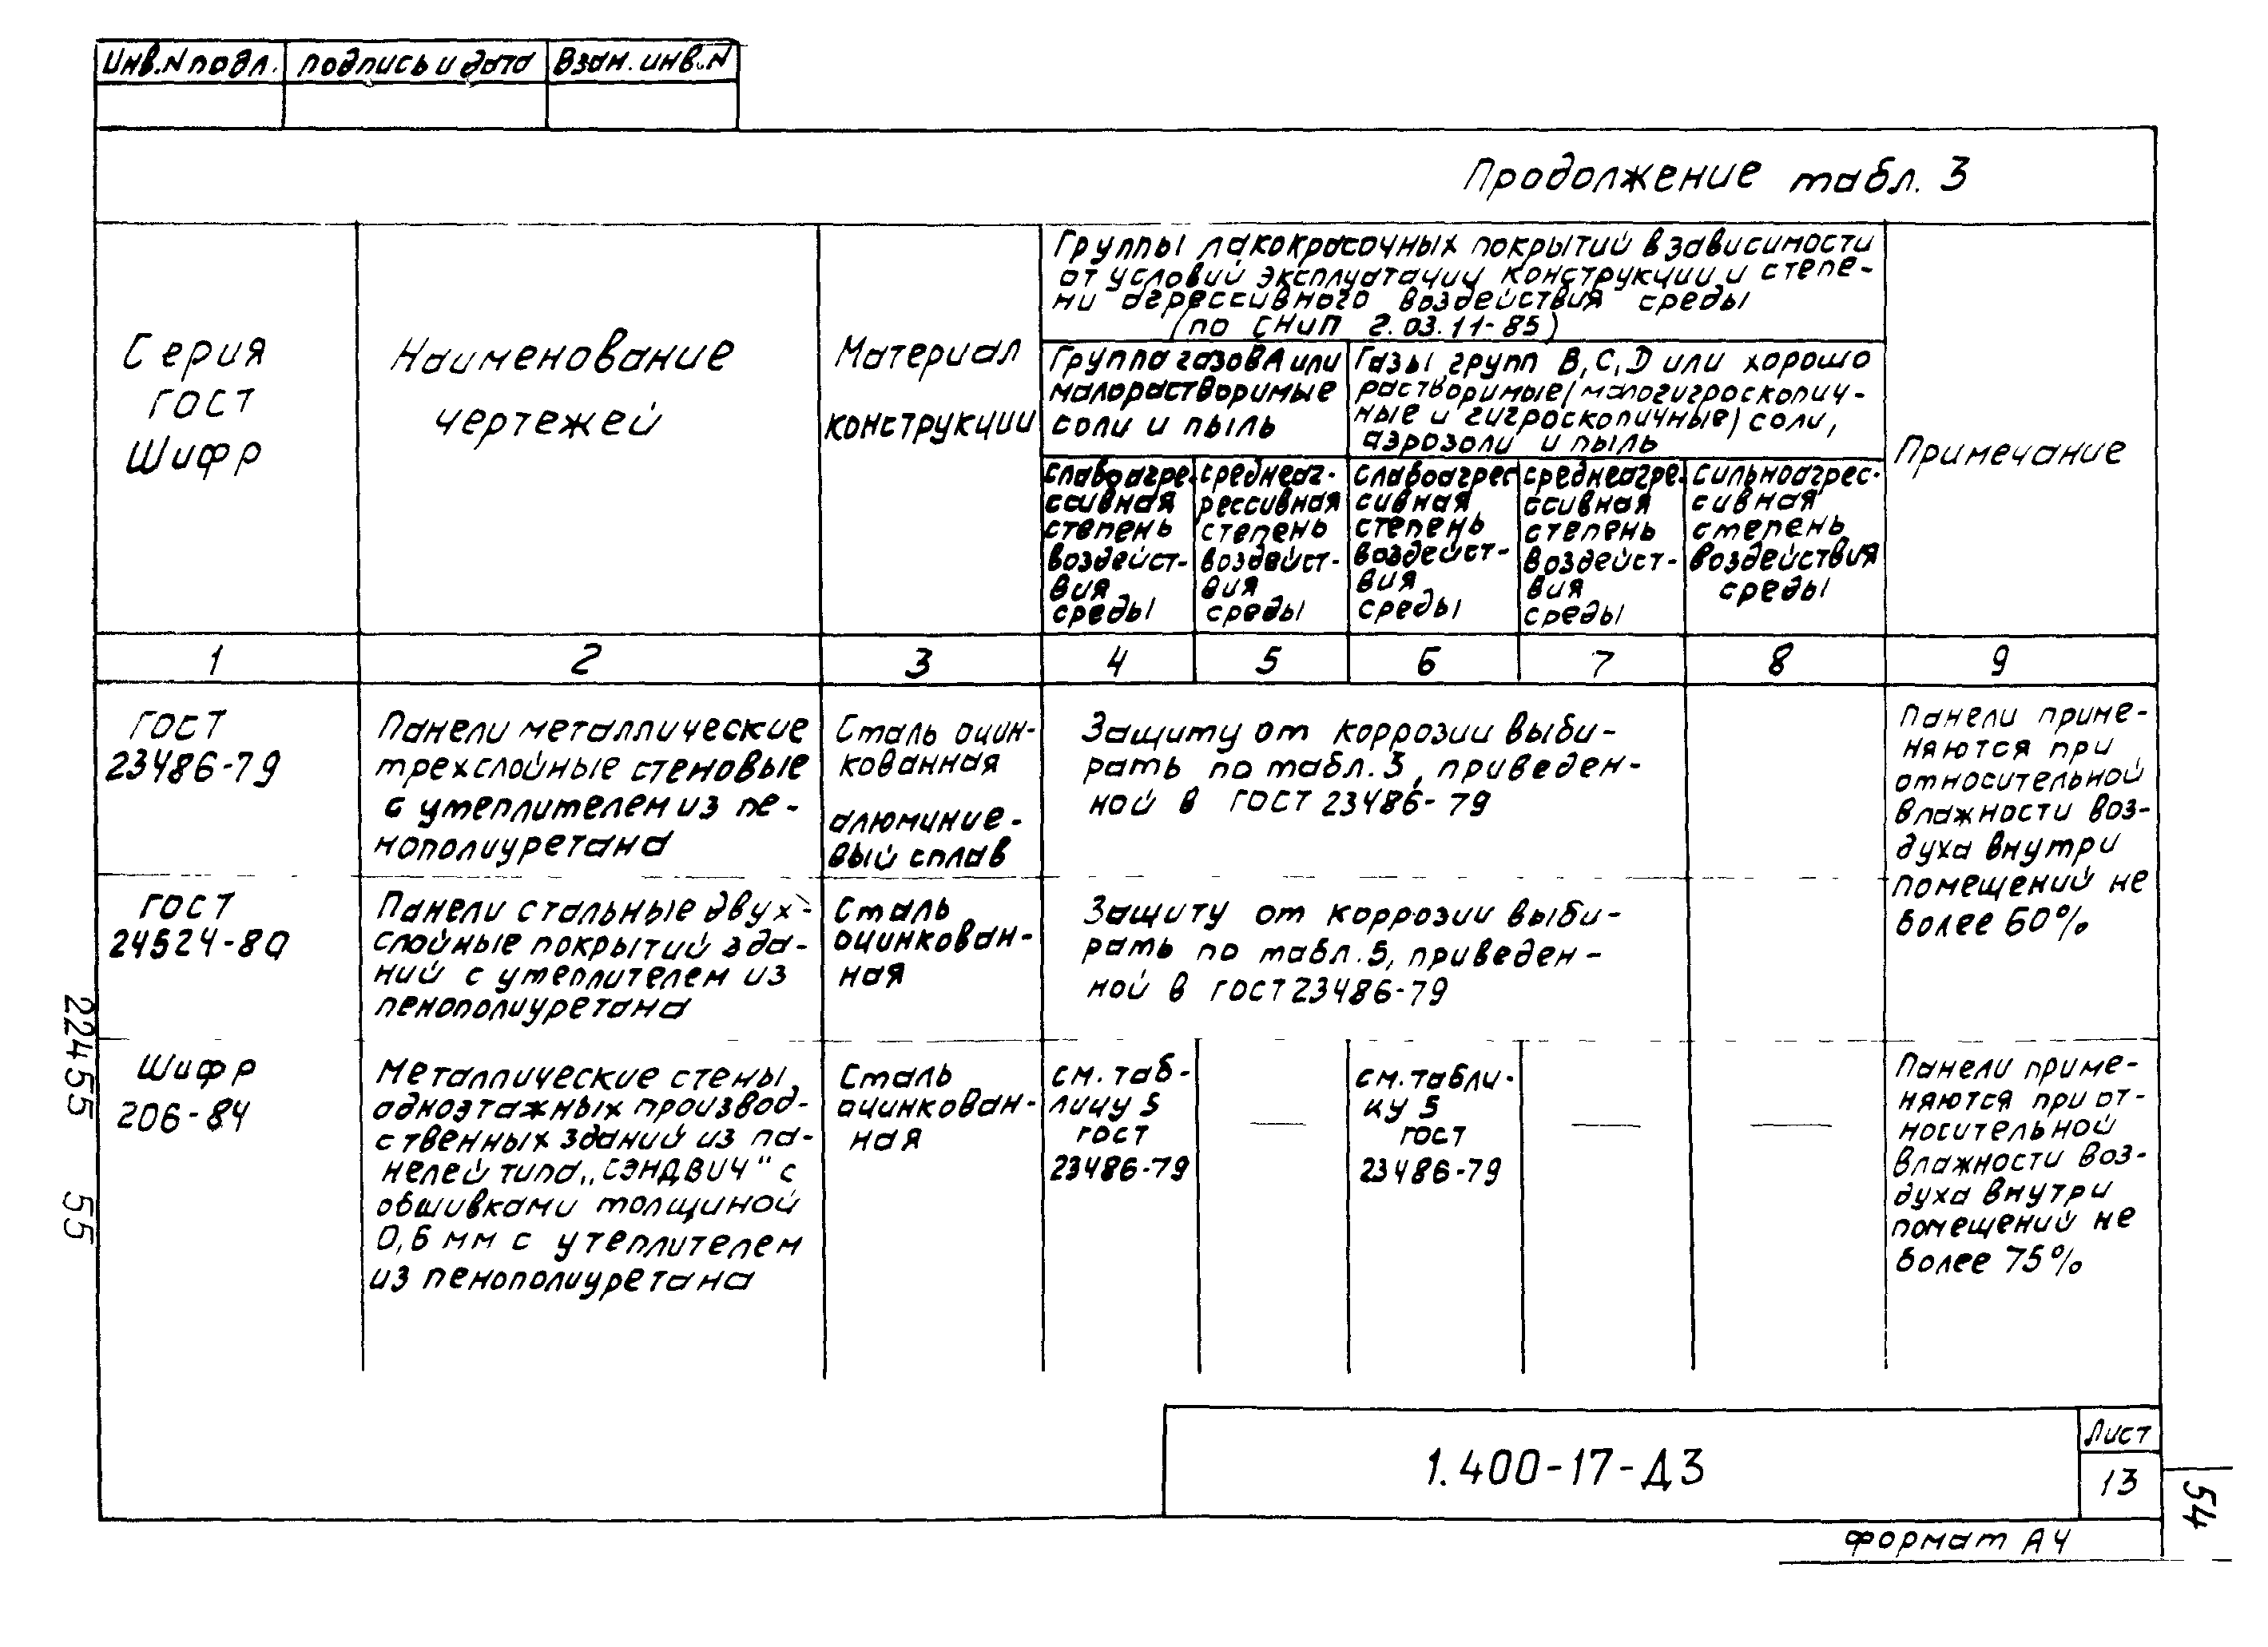 Инв.N подл. подпись и дата Взам. инв.N
Продолжение табл. 3
Серия
ГОСТ
Шифр
Наименование
чертежей
Материал
конструкции
Группы лакокрасочных покрытий в зависимости
от условий эксплуатации конструкции и степе-
ни агрессивного воздействия среды
(по СНиП 2.03.11-85)
Группа газов А или
малорастворимые
соли и пыль
Газы групп В, С, D или хорошо
растворимые (малогигроскопич-
ные и гигроскопичные) соли,
аэрозоли и пыль
слабоагре-
ссивная
степень
воздейст-
вия
среды
среднеаг-
рессивная
степень
воздейст-
вия
среды
слабоагрес
сивная
степень
воздейст-
вия
среды
среднеагре-
ссивная
степень
воздейст-
вия
среды
сильноагрес-
сивная
степень
воздействия
среды
Примечание
1 2 3 4 5 6 7 8 9
ГОСТ
23486-79
Панели металлические
трехслойные стеновые
с утеплителем из пе-
нополиуретана
Сталь оцин-
кованная
алюминие-
вый сплав
Защиту от коррозии выби-
рать по табл. 5, приведен-
ной в ГОСТ 23486-79
Панели приме-
няются при
относительной
влажности воз-
духа внутри
помещений не
более 60%
ГОСТ
24524-80
Панели стальные двух-
слойные покрытий зда-
ний с утеплителем из
пенополиуретана
Сталь
оцинкован-
ная
Защиту от коррозии выби-
рать по табл. 5, приведен-
ной в ГОСТ 23486-79
Шифр
206-84
Металлические стены
одноэтажных производ-
ственных зданий из па-
нелей типа „СЭНДВИЧ" с
обшивками толщиной
0,6 мм с утеплителем
из пенополиуретана
Сталь
оцинкован-
ная
см. таб-
лицу 5
ГОСТ
23486-79
—
см. табли-
цу 5
ГОСТ
23486-79
—
—
Панели приме-
няются при от-
носительной
влажности воз-
духа внутри
помещений не
более 75%
22455 55
1.400-17-Д3
Лист
13
54
формат А4